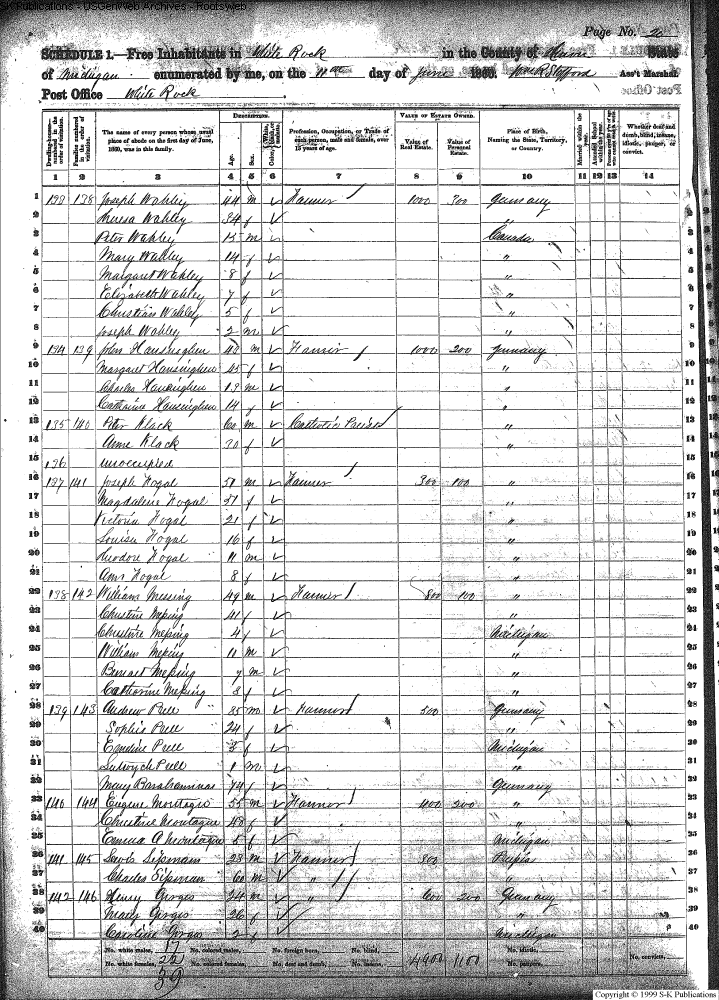 SK Publications - USGenWeb Archives - Rootsweb
Page No. 20
SCHEDULE 1.—Free Inhabitants in White Rock in the County of Huron State
of Michigan enumerated by me, on the 11th day of June 1860. Wm R Stafford Ass't Marshal.
Post Office White Rock
Dwelling-houses numbered in the order of visitation.
Families numbered in the order of visitation.
The name of every person whose usual place of abode on the first day of June, 1860, was in this family.
DESCRIPTION.
Age.
Sex.
Profession, Occupation, or Trade of each person, male and female, over 15 years of age.
VALUE OF ESTATE OWNED.
Value of Real Estate.
Value of Personal Estate.
Place of Birth, Naming the State, Territory, or Country.
Married within the year.
Attended School within the year.
Whether deaf and dumb, blind, insane, idiotic, pauper, or convict.
1 2 3 4 5 6 7 8 9 10 11 12 13 14
1 133 138 Joseph Wahley 44 m ✓ Farmer 1000 300 Germany 1
2 Theresa Wahley 34 f ✓ " 2
3 Peter Wahley 15 m ✓ Canada 3
4 Mary Wahley 14 f ✓ " 4
5 Margaret Wahley 8 f ✓ " 5
6 Elizabeth Wahley 7 f ✓ " 6
7 Christian Wahley 5 f ✓ " 7
8 Joseph Wahley 2 m ✓ " 8
9 134 139 John Hansinghen 48 m ✓ Farmer 1000 200 Germany 9
10 Margaret Hansinghen 45 f ✓ " 10
11 Charles Hansinghen 19 m ✓ " 11
12 Catharine Hansinghen 14 f ✓ " 12
13 135 140 Peter Klack 60 m ✓ Catholic Priest " 13
14 Anne Klack 30 f ✓ " 14
15 136 unoccupied 15
16 137 141 Joseph Hogal 51 m ✓ Farmer 300 100 " 16
17 Magdalene Hogal 51 f ✓ " 17
18 Victoria Hogal 21 f ✓ " 18
19 Louisa Hogal 16 f ✓ " 19
20 Theodore Hogal 11 m ✓ " 20
21 Ann Hogal 8 f ✓ " 21
22 138 142 William Messing 49 m ✓ Farmer 800 100 " 22
23 Christine Messing 41 f ✓ " 23
24 Christine Messing 4 f ✓ Michigan 24
25 William Messing 11 m ✓ " 25
26 Bernard Messing 7 m ✓ " 26
27 Catharine Messing 3 f ✓ " 27
28 139 143 Andrew Pull 35 m ✓ Farmer 500 Germany 28
29 Sophis Pull 24 f ✓ " 29
30 Emeline Pull 3 f ✓ Michigan 30
31 Ludwych Pull 1 m ✓ " 31
32 Mary 74 f ✓ Germany 32
33 140 144 Eugene Montague 55 m ✓ Farmer 400 200 " 33
34 Christine Montague 48 f ✓ " 34
35 Emma A Montague 5 f ✓ Michigan 35
36 141 145 Lewis Sipmam 23 m ✓ Farmer 800 Prussia 36
37 Charles Sipman 60 m ✓ " " 37
38 142 146 Henry Gorges 34 m ✓ " 600 200 Germany 38
39 Mary Gorges 26 f ✓ " 39
40 Caroline Gorges 2 f ✓ Michigan 40
No. white males, 17 No. colored males, No. foreign born, No. blind, 4900 1100 No. idiotic, No. convicts,
No. white females, 22 No. colored females, No. deaf and dumb, No. insane, No. paupers,
39
Copyright © 1999 S-K Publications